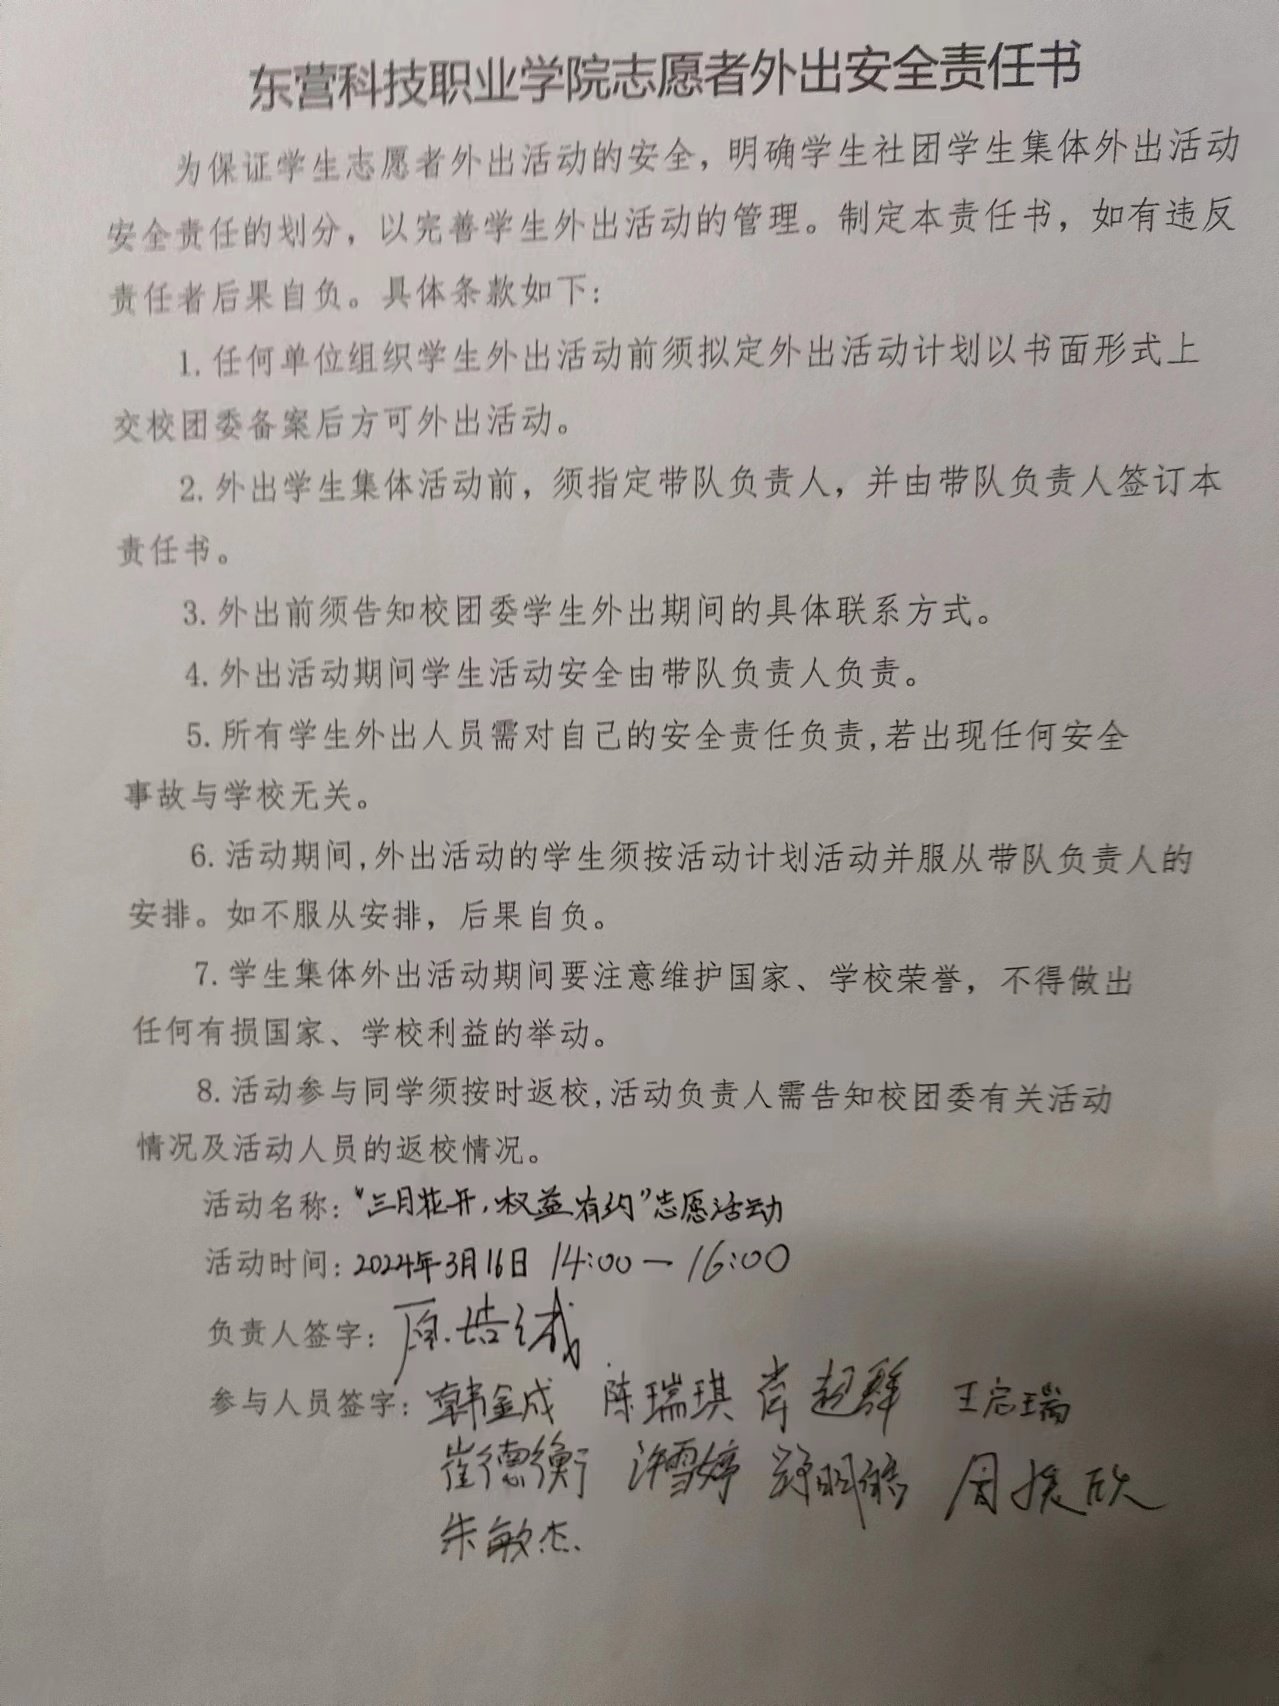 东营科技职业学院志愿者外出安全责任书
为保证学生志愿者外出活动的安全，明确学生社团学生集体外出活动
安全责任的划分，以完善学生外出活动的管理。制定本责任书，如有违反
责任者后果自负。具体条款如下：
1.任何单位组织学生外出活动前须拟定外出活动计划以书面形式上
交校团委备案后方可外出活动。
2.外出学生集体活动前，须指定带队负责人，并由带队负责人签订本
责任书。
3.外出前须告知校团委学生外出期间的具体联系方式。
4.外出活动期间学生活动安全由带队负责人负责。
5.所有学生外出人员需对自己的安全责任负责,若出现任何安全
事故与学校无关。
6.活动期间,外出活动的学生须按活动计划活动并服从带队负责人的
安排。如不服从安排，后果自负。
7.学生集体外出活动期间要注意维护国家、学校荣誉，不得做出
任何有损国家、学校利益的举动。
8.活动参与同学须按时返校,活动负责人需告知校团委有关活动
情况及活动人员的返校情况。
活动名称：“三月花开，权益有约”志愿活动
活动时间：2024年3月16日 14:00—16:00
负责人签字：
参与人员签字：韩金成 陈瑞琪 肖超群 王启瑞
崔德衡 许雪婷
朱敏杰